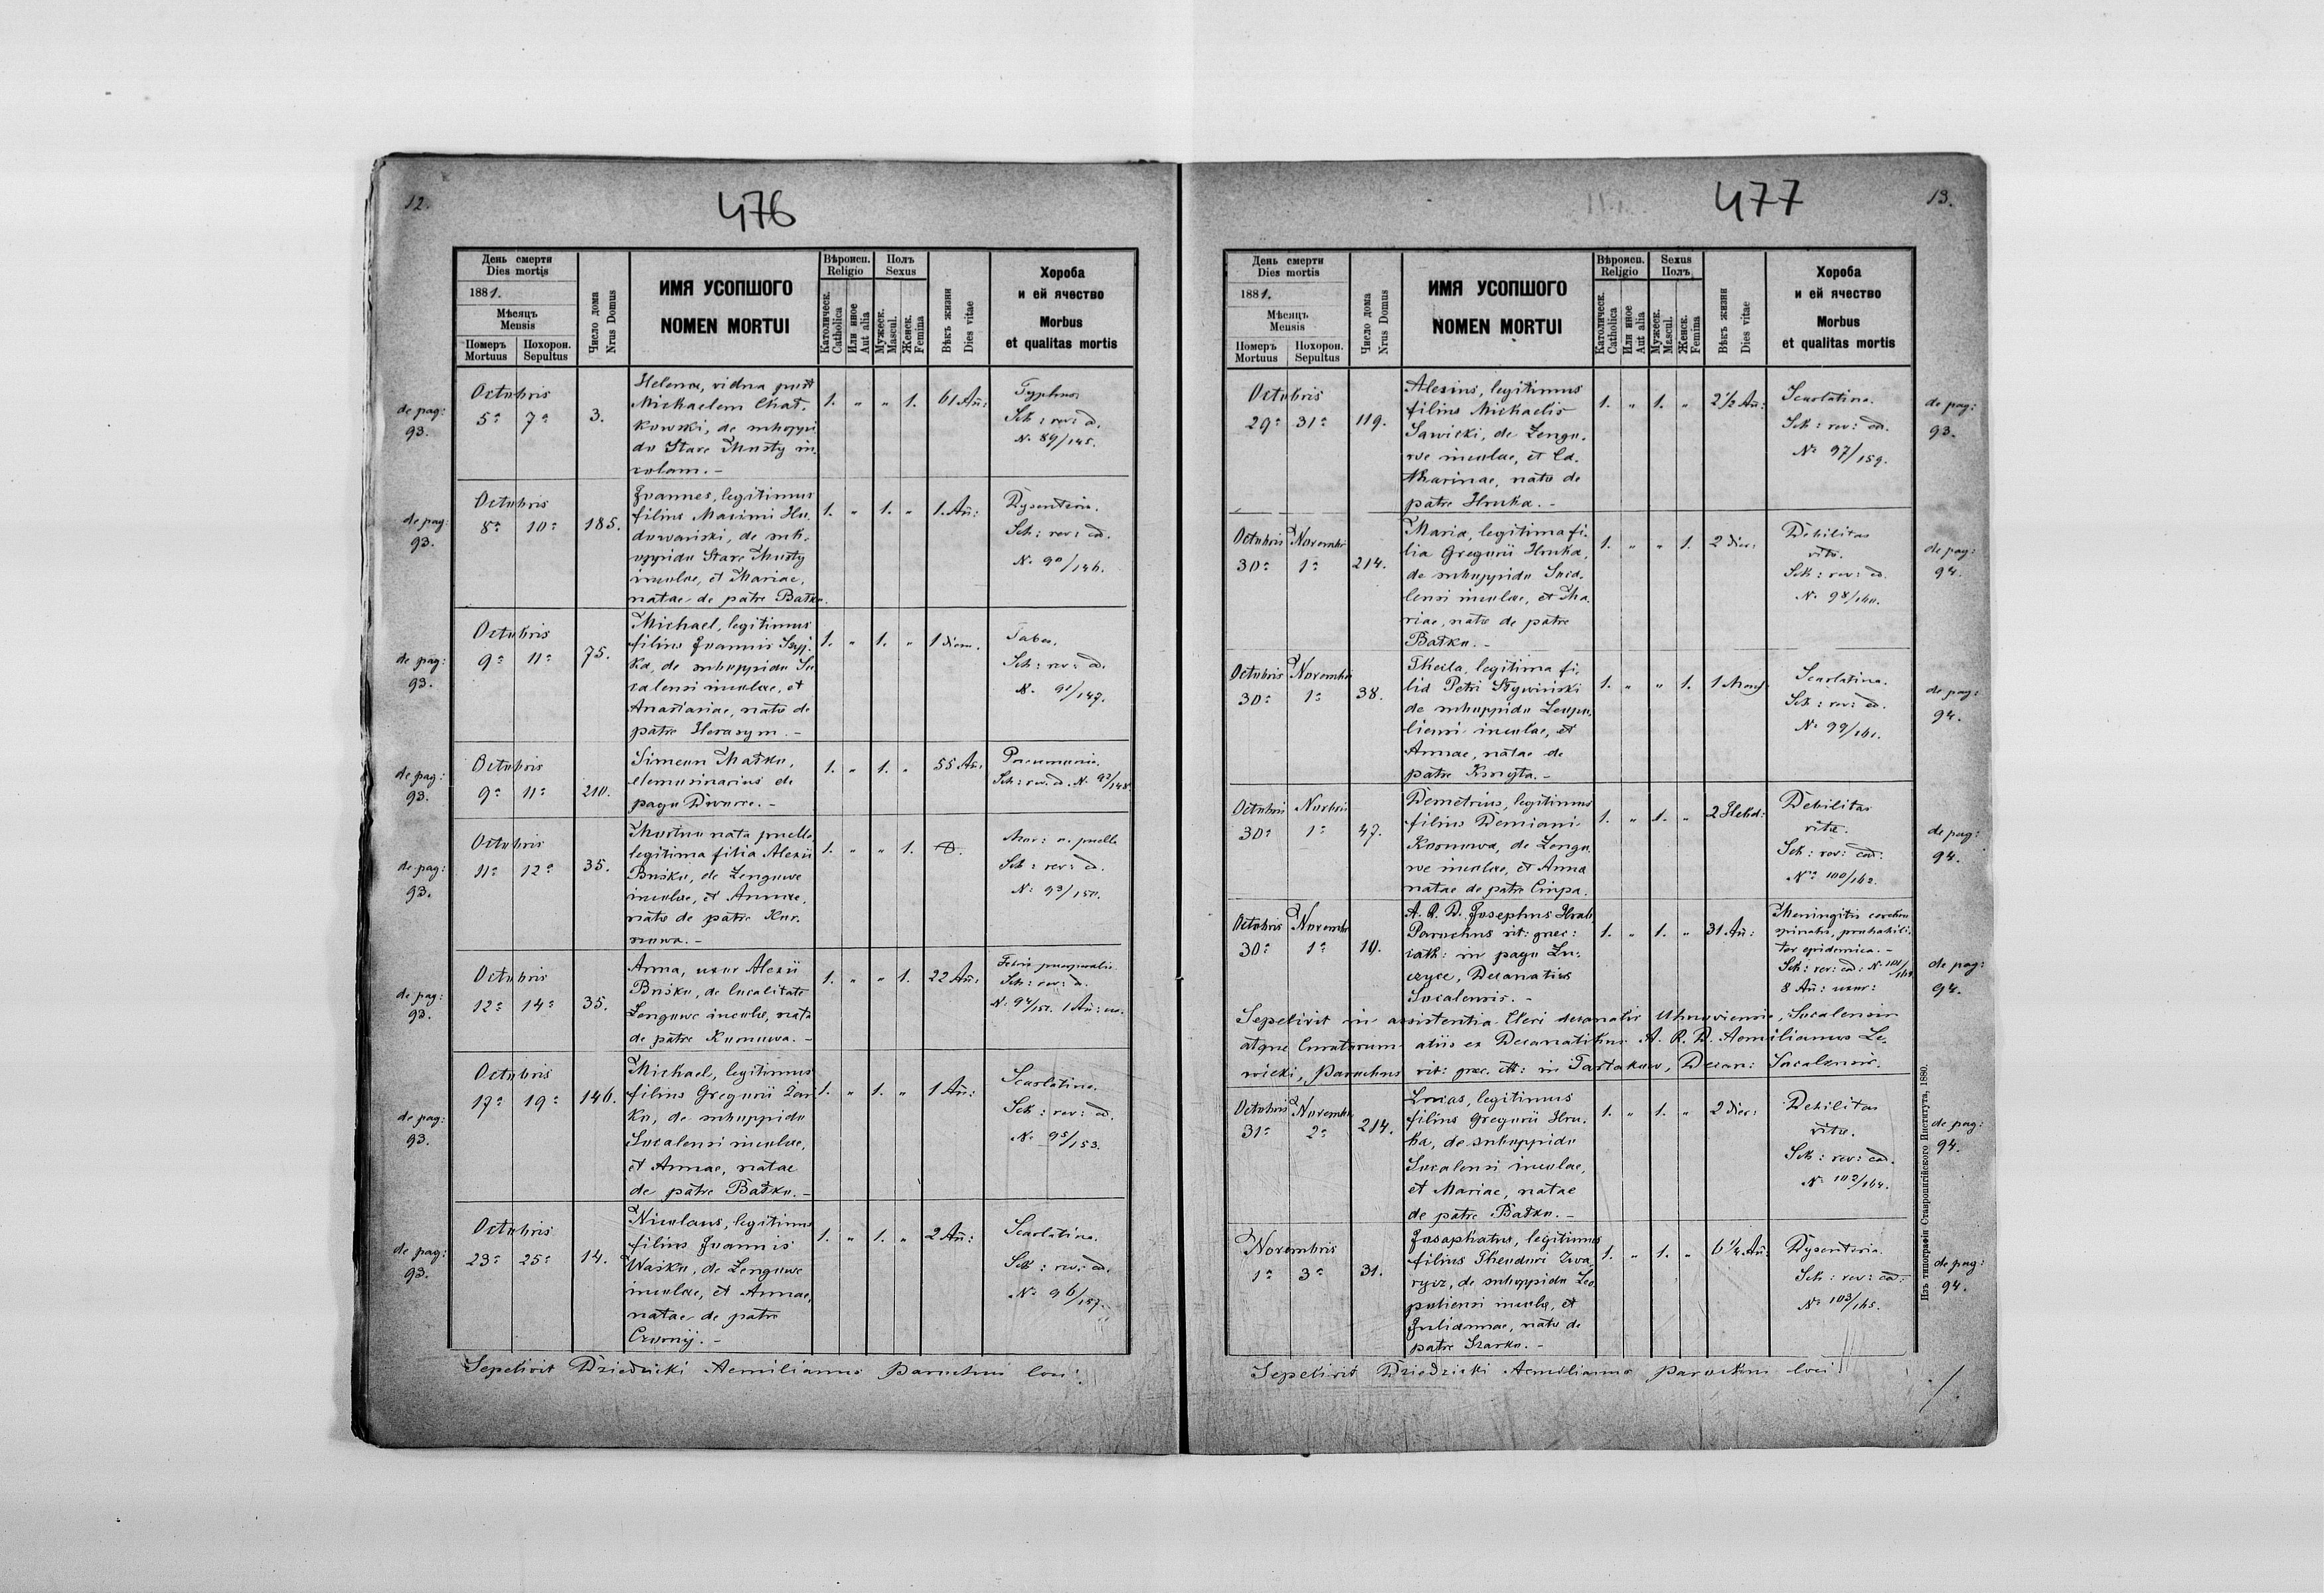 12.
476
День смерти
Dies mortis
1881.
Мѣсяцъ
Mensis
Померъ
Mortuus
Похорон.
Sepultus
Число дома
Nrus Domus
ИМЯ УСОПШОГО
NOMEN MORTUI
Вѣроисп.
Religio
Католическ.
Catholica
Или иное
Aut alia
Полъ
Sexus
Мужеск.
Mascul.
Женск.
Femina
Вѣкъ жизни
Dies vitae
Хороба
и ей ячество
Morbus
et qualitas mortis
de pag:
93.
Octobris
5a 7a
3.
Helena, vidua post
Michaelem Chat-
kowski, de suboppi
do Stare Miasty in-
colam. -
1. " " 1.
61 An:
Typhus
Sch: rev: cd.
N. 89/145.
de pag:
93.
Octobris
8a 10a
185.
Joannes, legitimus
filius Maximi Hu-
dowański, de sub-
oppido Stare Miasty
incolae, et Mariae,
natae de patre Batko.
1. " 1. "
1. An:
Dysenteria.
Sch: rev: cd.
N. 90/146.
de pag:
93.
Octobris
9a 11a
75.
Michael, legitimus
filius Joannis
ka, de suboppido So
calensi incolae, et
Anastasiae, nata de
patre Herasym. -
1. " 1. "
1 diem.
Tabes.
Sch: rev: cd.
N. 91/147.
de pag:
93.
Octobris
9a 11a
210.
Simeon Matko,
elemosinarius de
pago Dworce. -
1. " 1. "
55 An:
Pneumonia.
Sch: rev. cd. N. 92/148.
de pag:
93.
Octobris
11a 12a
35.
Mortuo nata puella
legitima filia Alexii
Busko, de Zengowe
incolae, et Annae,
nata de patre Kor-
nowa. -
1. " " 1.
Mor: n. puella
Sch: rev: cd.
N. 93/150.
de pag:
93.
Octobris
12a 14a
35.
Anna, uxor Alexii
Busko, de localitate
Zengowe incolae, nata
de patre Kornowa. -
1. " " 1.
22 An:
Febris puerperalis
Sch: rev: cd.
N. 94/151. 1 An: ux.
de pag:
93.
Octobris
17a 19a
146.
Michael, legitimus
filius Gregorii
ko, de suboppido
Socalensi incolae,
et Annae, natae
de patre Batko. -
1. " 1. "
1 An:
Scarlatina.
Sch: rev: cd.
N. 95/153.
de pag:
93.
Octobris
23a 25a
14.
Nicolaus, legitimus
filius Joannis
Wasko, de Zengowe
incolae, et Annae,
natae de patre
Czornij. -
1. " 1. "
2 An:
Scarlatina.
Sch: rev: cd.
N. 96/157.
Sepelivit Dziedzicki Aemilianus parochus loci.
477
13.
День смерти
Dies mortis
1881.
Мѣсяцъ
Mensis
Померъ
Mortuus
Похорон.
Sepultus
Число дома
Nrus Domus
ИМЯ УСОПШОГО
NOMEN MORTUI
Вѣроисп.
Religio
Католическ.
Catholica
Или иное
Aut alia
Sexus
Полъ
Мужеск.
Mascul.
Женск.
Femina
Вѣкъ жизни
Dies vitae
Хороба
и ей ячество
Morbus
et qualitas mortis
Octobris
29a 31a
119.
Alexius, legitimus
filius Michaelis
Sawicki, de Zengo-
we incolae, et Ca-
tharinae, nata de
patre Hruka. -
1. " 1. "
2 1/2 An:
Scarlatina.
Sch: rev: cd.
N. 97/159.
de pag:
93.
Octobris Novembr
30a 1a
214.
Maria, legitima fi-
lia Gregorii Hruka,
de suboppido Soca-
lensi incolae, et Ma-
riae, nata de patre
Batko. -
1. " " 1.
2 dies:
Debilitas
vitae.
Sch: rev: cd.
N. 98/160.
de pag:
94.
Octobris Novembr
30a 1a
38.
Thecla, legitima fi-
lia Petri
de suboppido Leopo-
liensi incolae, et
Annae, natae de
patre
1. " " 1.
1 Mens:
Scarlatina.
Sch: rev: cd.
N. 99/161.
de pag:
94.
Octobris Novbris
30a 1a
47.
Demetrius, legitimus
filius Demiani
Kornowa, de Zengo-
we incolae, et Anna
natae de patre Ciupa.
1. " 1. "
2 Hebd:
Debilitas
vitae.
Sch: rev: cad:
Nro 100/162.
de pag:
94.
Octobris Novembr
30a 1a
10.
A. R. D. Josephus Hrab
Parochus rit: graec:
cath: in pago Lu-
czyce, Decanatus
Socalensis. -
1. " 1. "
31 An:
Meningitis cerebro
spinalis, probabili-
ter epidemica. -
Sch: rev: cd: N. 101/163
8 An: uxor:
de pag:
94.
Sepelivit in assistentia Cleri decanatus Uhnoviensis, Socalensis
atque Curatorum aliis ex Decanatibus A. R. D. Aemilianus Le-
wicki, parochus rit: graec. ctt: in Tartakow, Decan: Socalensis.
Octobris Novembr
31a 2a
214.
Lucas, legitimus
filius Gregorii Hru-
ka, de suboppido
Socalensi incolae,
et Mariae, natae
de patre Batko. -
1. " 1. "
2 dies:
Debilitas
vitae.
Sch: rev: cd.
N. 102/164.
de pag:
94.
Novembris
1a 3a
31.
Josaphatus, legitimus
filius Theodori Zwa
rycz, de suboppido Leo
poliensi incolae, et
Julianae, nata de
patre Szarko. -
1. " 1. "
6 1/2 An:
Dysenteria.
Sch: rev: cd.
N. 103/165.
de pag:
94.
Sepelivit Dziedzicki Aemilianus parochus loci
Изъ типографіи Ставропигійского Института, 1880.